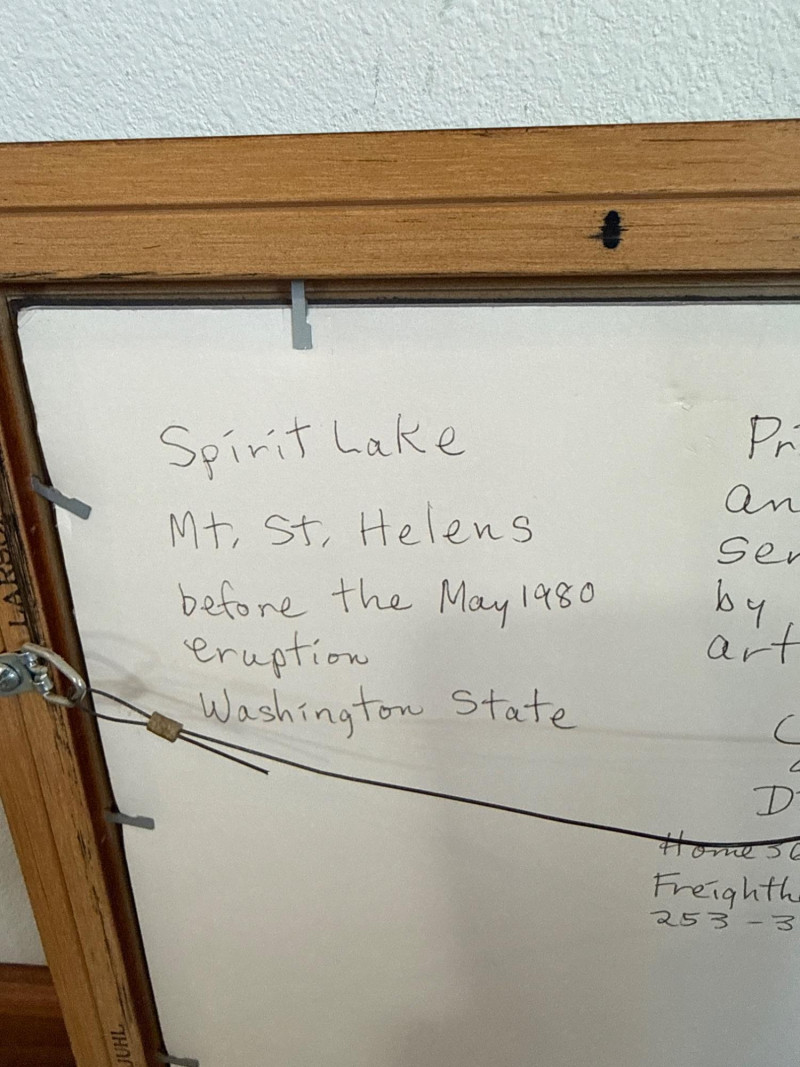 Spirit Lake
Mt. St. Helens
before the May 1980
eruption
Washington State
Pri
an
ser
by
art
D
Homes
Freighth
253-3
LARSO
JUHL